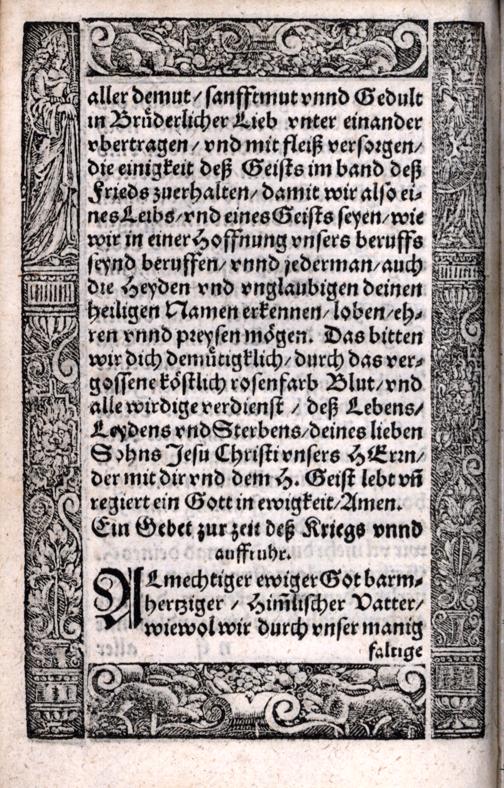 aller demut/ sanfftmut vnnd Gedult
in Brüderlicher Lieb vnter einander
vbertragen/ vnd mit fleiß versorgen/
die einigkeit deß Geists im band deß
Frieds zuerhalten/ damit wir also ei-
nes Leibs/ vnd eines Geists seyen/ wie
wir in einer Hoffnung vnsers beruffs
seynd beruffen/ vnnd jederman/ auch
die Heyden vnd vnglaubigen deinen
heiligen Namen erkennen/ loben/ eh-
ren vnnd preysen mögen. Das bitten
wir dich demütigklich/ durch das ver-
gossene köstlich rosenfarb Blut/ vnd
alle wirdige verdienst / deß Lebens/
Leydens vnd Sterbens/ deines lieben
Sohns Jesu Christi vnsers HErrn/
der mit dir vnd dem H. Geist lebt vñ
regiert ein Gott in ewigkeit/ Amen.
Ein Gebet zur zeit deß Kriegs vnnd
auffruhr.
ALmechtiger ewiger Got barm-
hertziger / Him̃lischer Vatter/
wiewol wir durch vnser manig
faltige